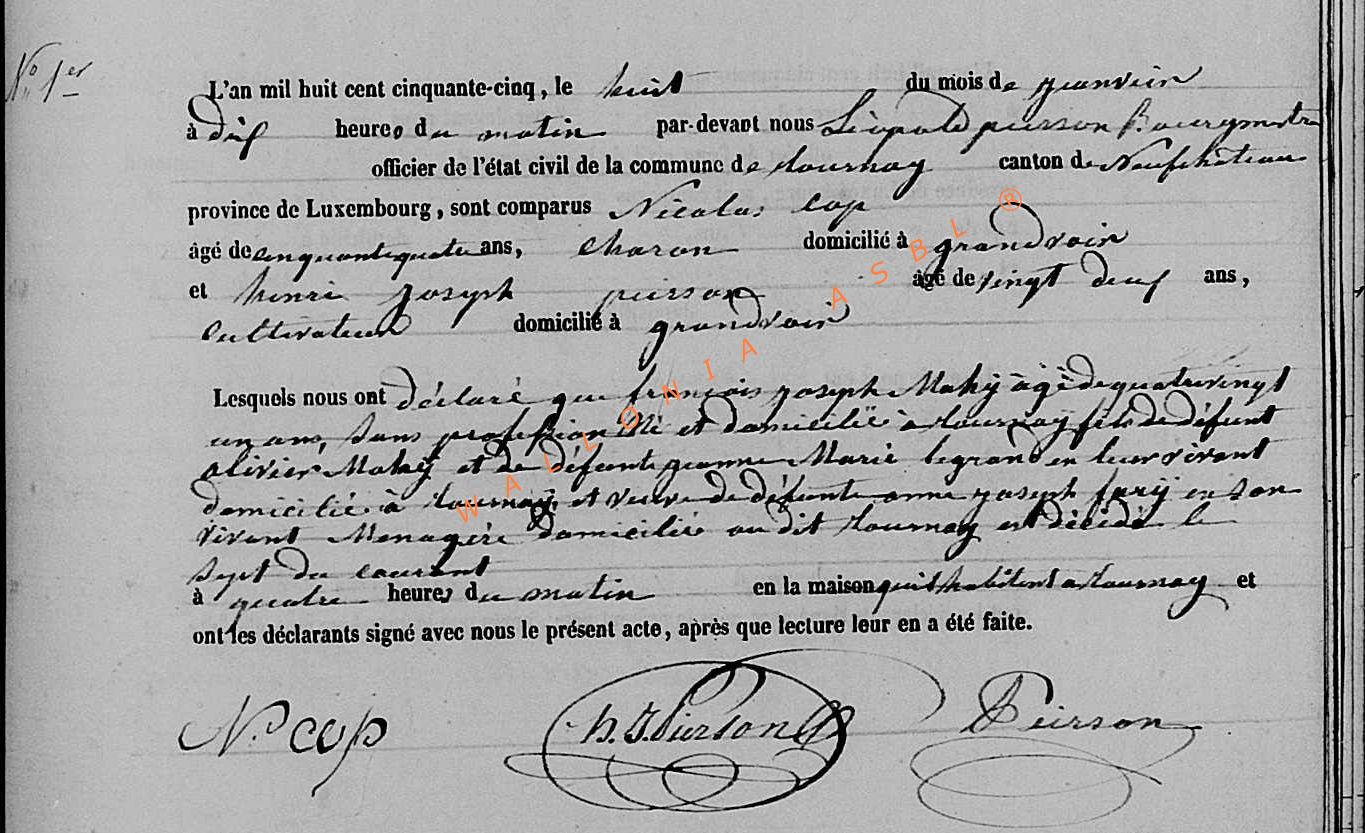 No 1er
L'an mil huit cent cinquante-cinq, le huit du mois de janvier
à dix heures du matin par-devant nous Léopold pierson Bourgmestre
officier de l'état civil de la commune de tournay canton de Neufchateau
province de Luxembourg, sont comparus Nicolas cop
âgé de cinquantequatre ans, charon domicilié à grandvoir
et henri joseph pierson âgé de vingt deux ans,
Cultivateur domicilié à grandvoir
Lesquels nous ont déclaré que françois joseph Mahÿ âgé de quatrevingt
un ans, sans profession Né et domicilié à tournay fils de défunt
olivier Mahÿ et de défunte jeanne Marie legrand en leur vivant
domicilié à tournay, et veuve de défunte anne joseph en son
vivant Menagère domicilié au dit tournay est décédé le
sept du courant
à quatre heures du matin en la maison qu'il habitent a tournay et
ont les déclarants signé avec nous le présent acte, après que lecture leur en a été faite.
N. cop h. J. Pierson Peirson
WALLONIA ASBL ®